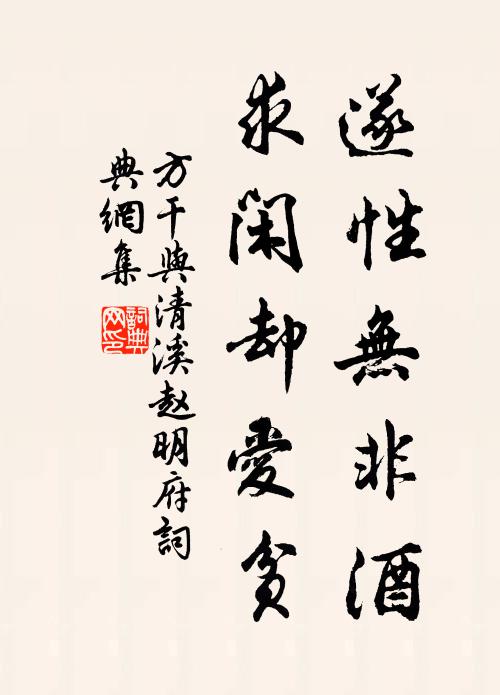 遂性無非酒
求閑却愛貧
方干與清溪赵明府詞
典網集
詞典网印